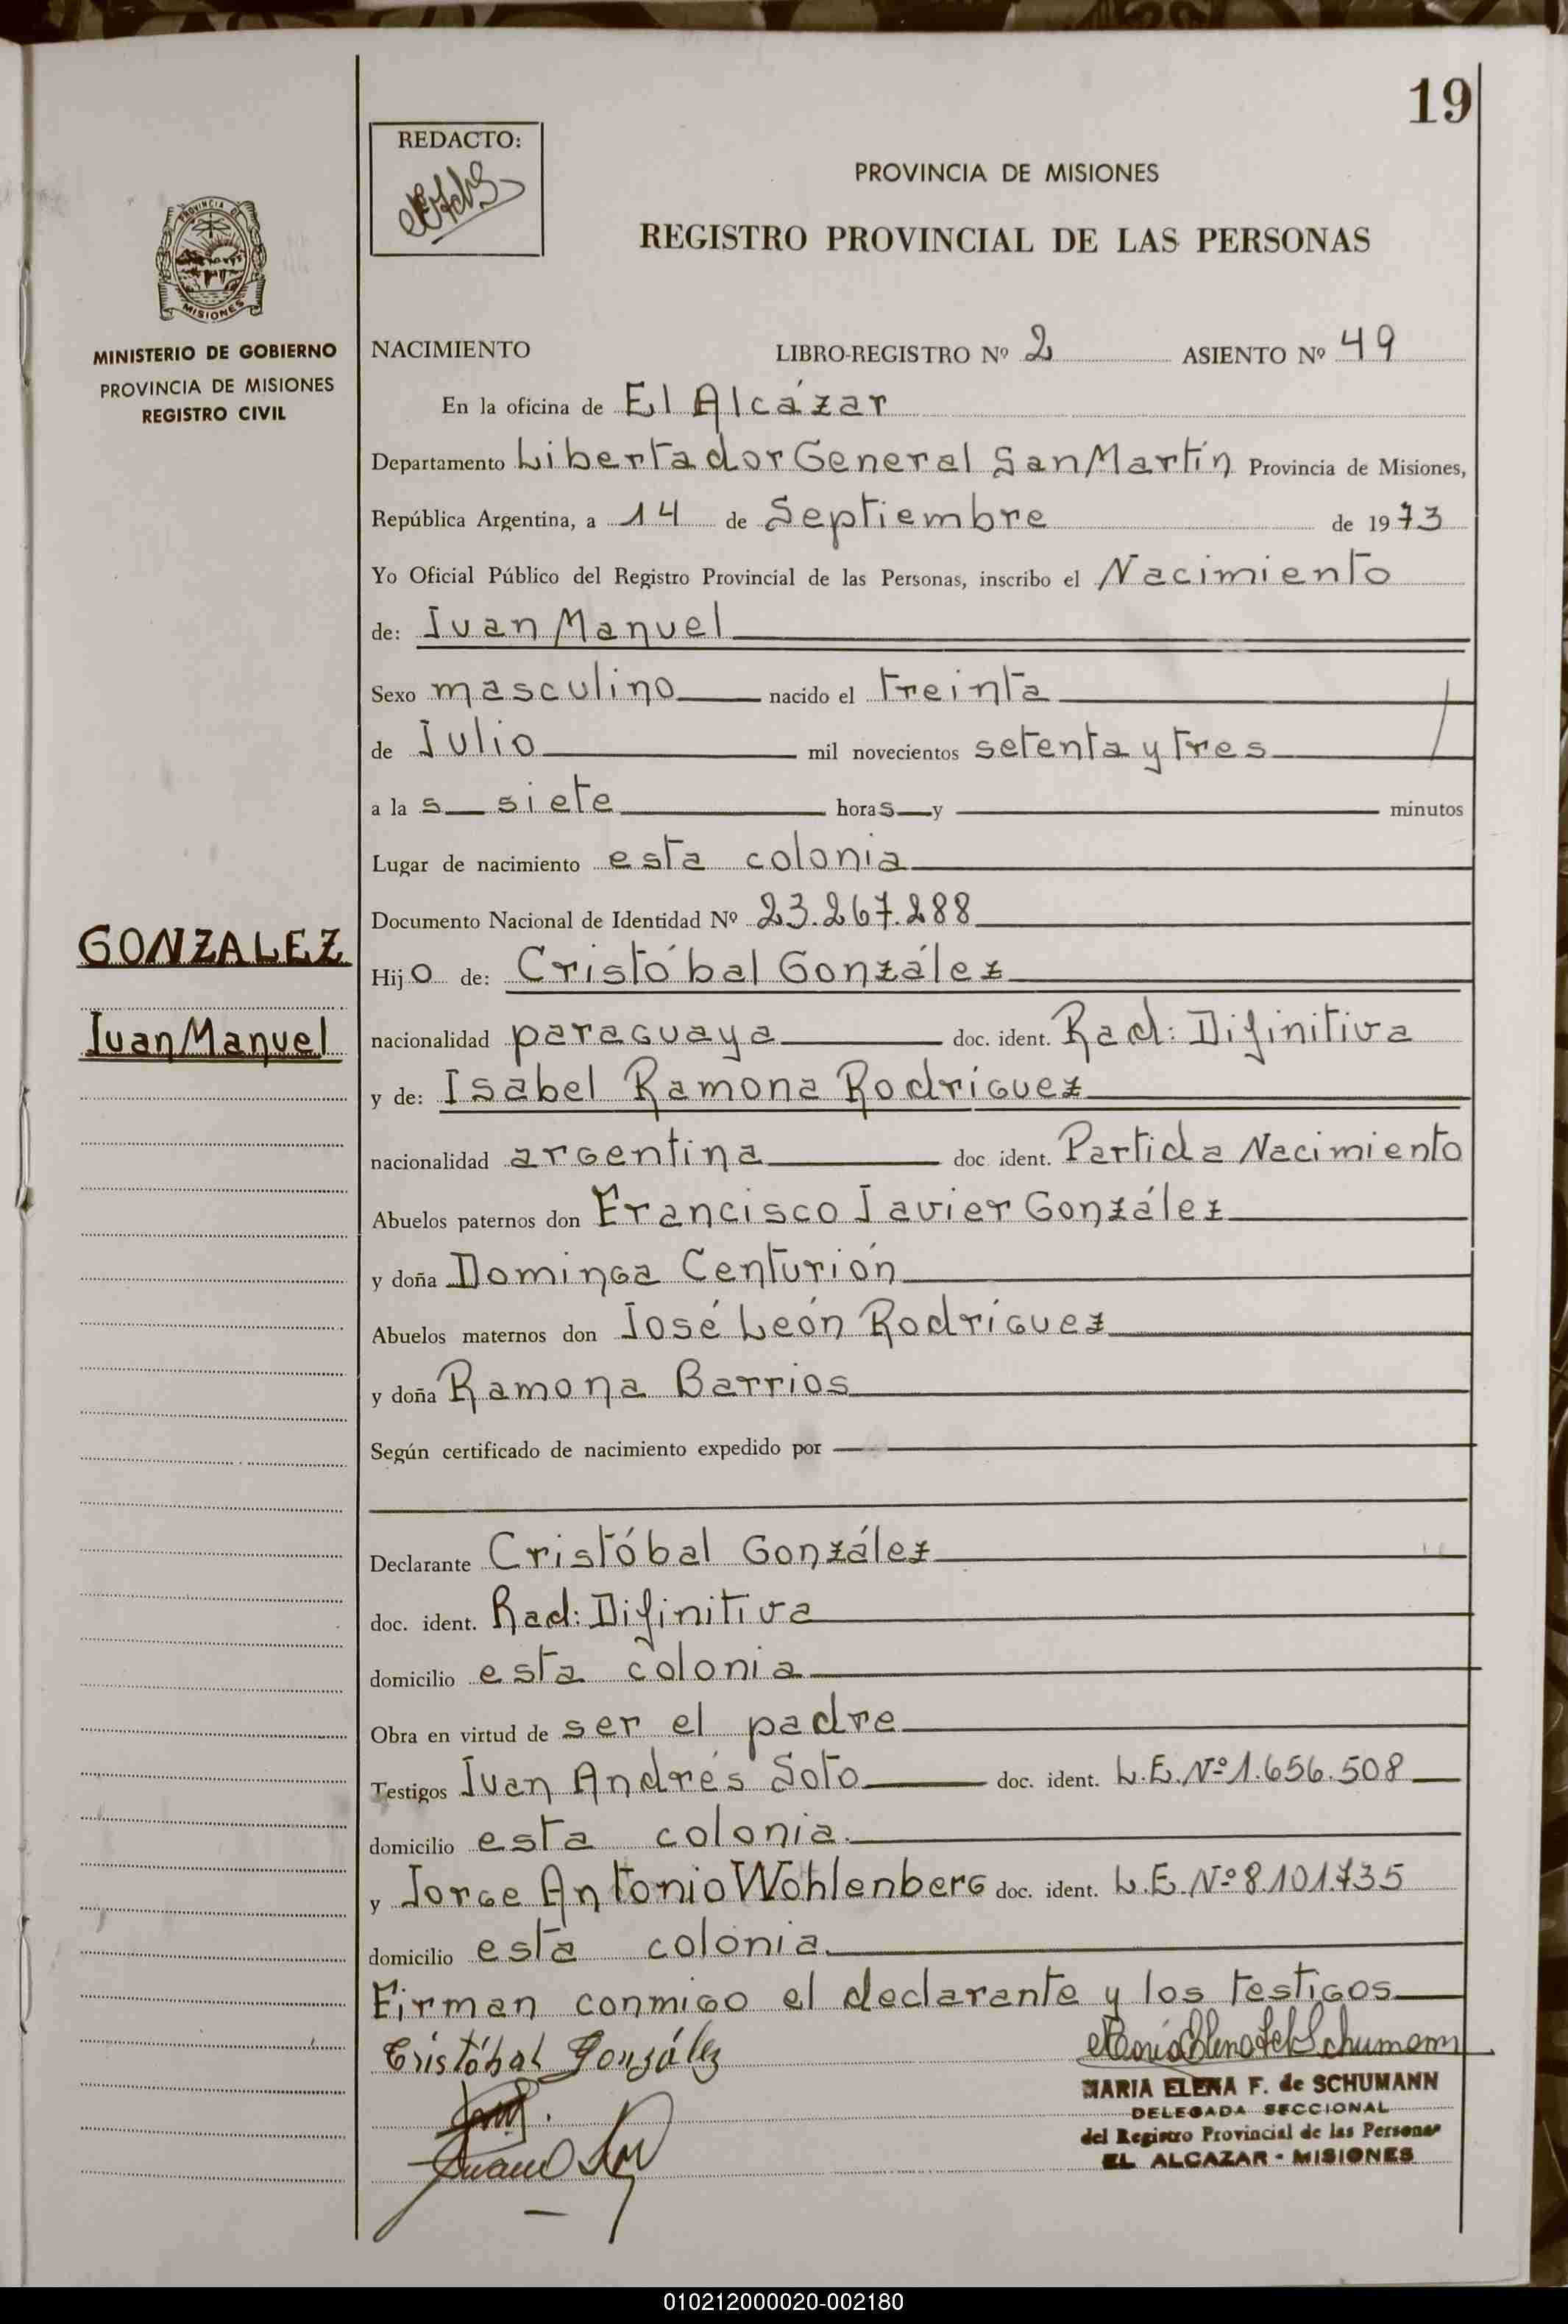 19
REDACTO:
PROVINCIA DE MISIONES
REGISTRO PROVINCIAL DE LAS PERSONAS
PROVINCIA DE
MISIONES
MINISTERIO DE GOBIERNO
PROVINCIA DE MISIONES
REGISTRO CIVIL
NACIMIENTO LIBRO-REGISTRO Nº 2 ASIENTO Nº 49
En la oficina de El Alcázar
Departamento Libertador General San Martín Provincia de Misiones,
República Argentina, a 14 de Septiembre de 1973
Yo Oficial Público del Registro Provincial de las Personas, inscribo el Nacimiento
de: Juan Manuel
Sexo masculino nacido el treinta
de Julio mil novecientos setenta y tres
a las siete horas y minutos
Lugar de nacimiento esta colonia
Documento Nacional de Identidad Nº 23.267.288
GONZALEZ
Juan Manuel
Hijo de: Cristóbal González
nacionalidad paraguaya doc. ident. Rad: Difinitiva
y de: Isabel Ramona Rodríguez
nacionalidad argentina doc ident. Partida Nacimiento
Abuelos paternos don Francisco Javier González
y doña Dominga Centurión
Abuelos maternos don José León Rodríguez
y doña Ramona Barrios
Según certificado de nacimiento expedido por
Declarante Cristóbal González
doc. ident. Rad: Difinitiva
domicilio esta colonia
Obra en virtud de ser el padre
Testigos Juan Andrés Soto doc. ident. L.E. Nº 1.656.508
domicilio esta colonia.
y Jorge Antonio Wohlenberg doc. ident. L.E. Nº 8.101.735
domicilio esta colonia
Firman conmigo el declarante y los testigos
Cristóbal González
MARIA ELENA F. de SCHUMANN
DELEGADA SECCIONAL
del Registro Provincial de las Personas
EL ALCAZAR - MISIONES
010212000020-002180